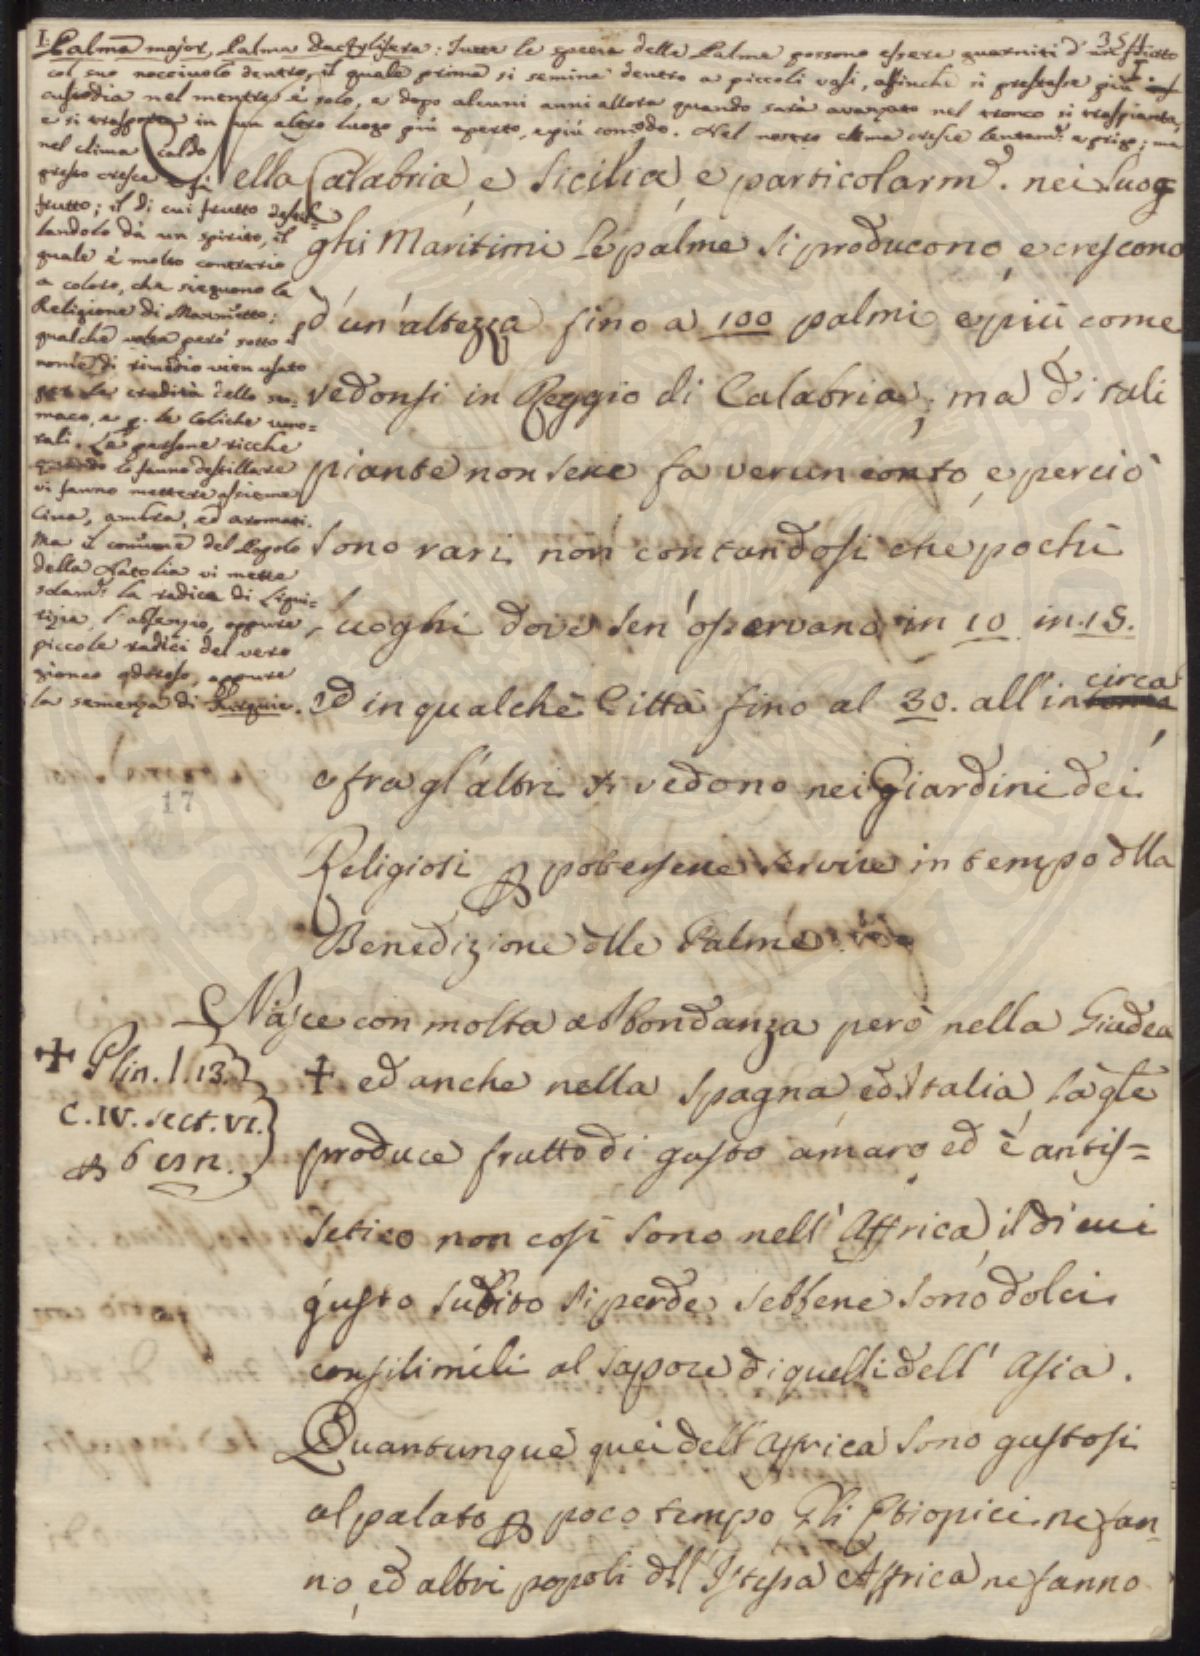 351
I. Palma major, Palma dactylifera: Tutte le specie delle Palme possono essere guarniti d'un frutto
col suo nocciuolo dentro, il quale prima si semina dentro a piccoli vasi, affinchè si prestasse più
custodia nel mentre è solo, e dopo alcuni anni allora quando sarà avanzato nel tronco si traspianta,
e si trasporta in un altro luogo più aperto, e più comodo. Nel nostro clima cresce lentam: e prigo; ma
nel clima caldo
presto cresce e fà
frutto; il di cui frutto destil=
landolo dà un spirito, il
quale è molto contrario
a coloro, che sieguono la
Religione di Maometto;
qualche volta però sotto il
nome di rimedio vien usato
per la crudità dello sto=
maco, e p. le coliche umo=
rali. Le persone ricche
quando lo fanno destillare
vi fanno mettere assieme
Cina, ambra, ed aromati.
Ma il comune del Popolo
della Natolia vi mette
solam: la radica di Liqui=
rizia, l'assenzio, oppure
piccole radici del vero
gionco odoroso, oppure
la semenza di
Nella Calabria, e Sicilia, e particolarm. nei Luog
ghi Maritimi le palme si producono, e crescono
d'un'altezza fino a 100 palmi, e più come
vedonsi in Reggio di Calabria; ma di tali
piante non sene fa verun conto, e perciò
sono rari non contandosi che pochi
luoghi dove sen'osservano in 10 in 15.
ed in qualche Città fino al 30. all'in circa
e fra gl'altri si vedono nei Giardini dei
Religiosi p potersene servire in tempo dlla
Benedizione dlle Palme.
17
Nasce con molta abbondanza però nella Giudea
✝ Plin. l. 13.
C. IV. sect. VI.
p 6 in.
✝ ed anche nella Spagna, ed Italia, la qle
produce frutto di gusto amaro, ed è antis=
setico non così sono nell'Affrica, il di cui
gusto subito si perde, sebbene sono dolci
consilimili al sapore di quelli dell'Asia.
Quantunque quei dell'Affrica sono gustosi
al palato p poco tempo Gli Etiopici ne fan=
no, ed altri popoli dll'Istessa Affrica ne fanno